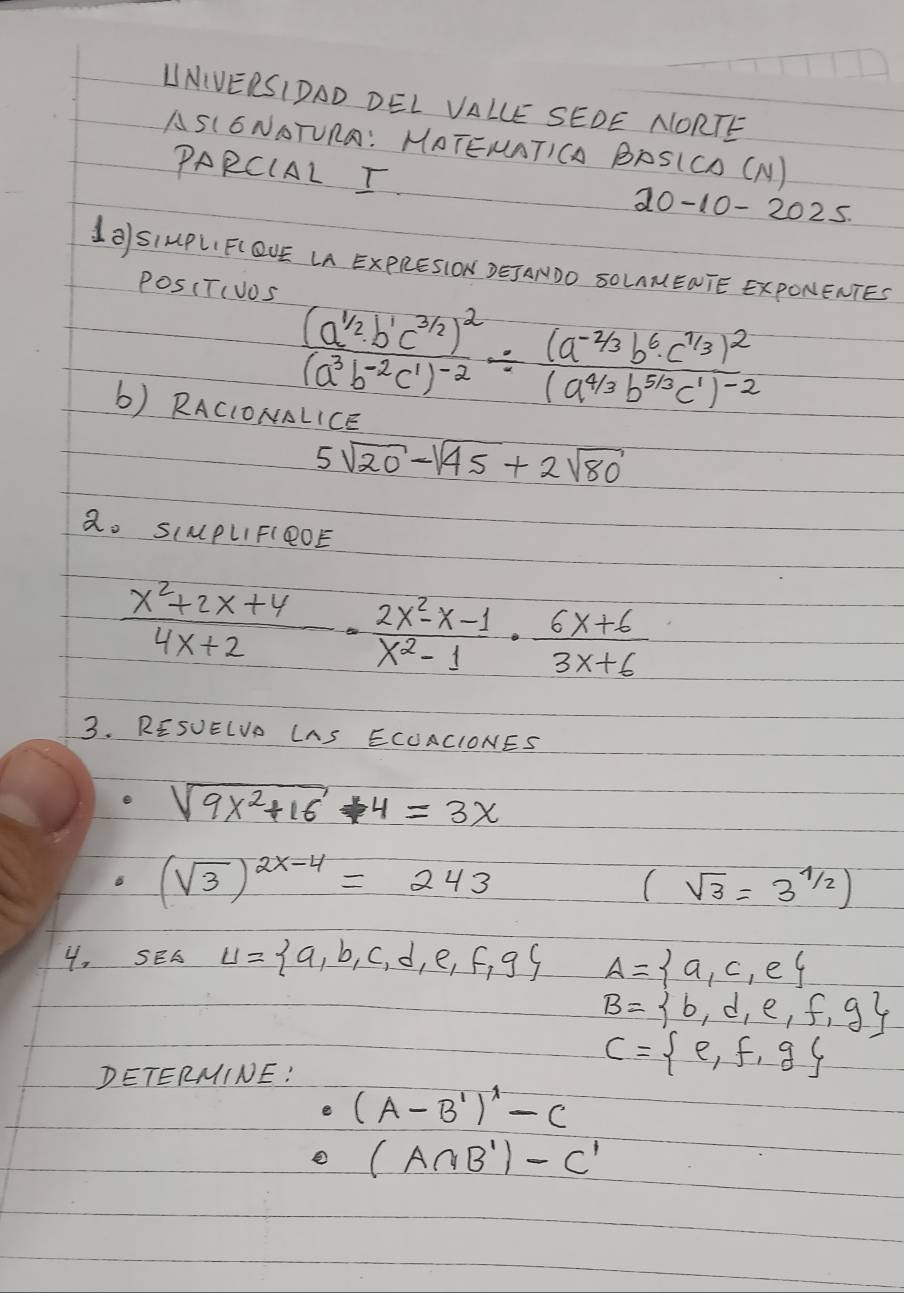 UNIVERSIDAD DEL VALLE SEDE NORTE
ASIGNATURA: MATEMATICA BASICA (N)
PARCIAL I
20-10-2025.
1a) SIMPLIFIQUE LA EXPRESION DEJANDO SOLAMENTE EXPONENTES
POSITIVOS
(a^1/2 . b^1 c^3/2)^2 / (a^3 b^-2 c^1)^-2 ÷ (a^-2/3 b^6 . c^1/3)^2 / (a^4/3 b^5/3 c^1)^-2
b) RACIONALICE
5√20 - √45 + 2√80
2. SIMPLIFIQUE
x² + 2x + 4 / 4x + 2 · 2x² - x - 1 / x² - 1 · 6x + 6 / 3x + 6
3. RESUELVA LAS ECUACIONES
• √9x² + 16 + 4 = 3x
• (√3)^2x-4 = 243 (√3 = 3^1/2)
4. SEA U = {a, b, c, d, e, f, g} A = {a, c, e}
B = {b, d, e, f, g}
C = {e, f, g}
DETERMINE:
• (A - B')' - C
• (A ∩ B') - C'